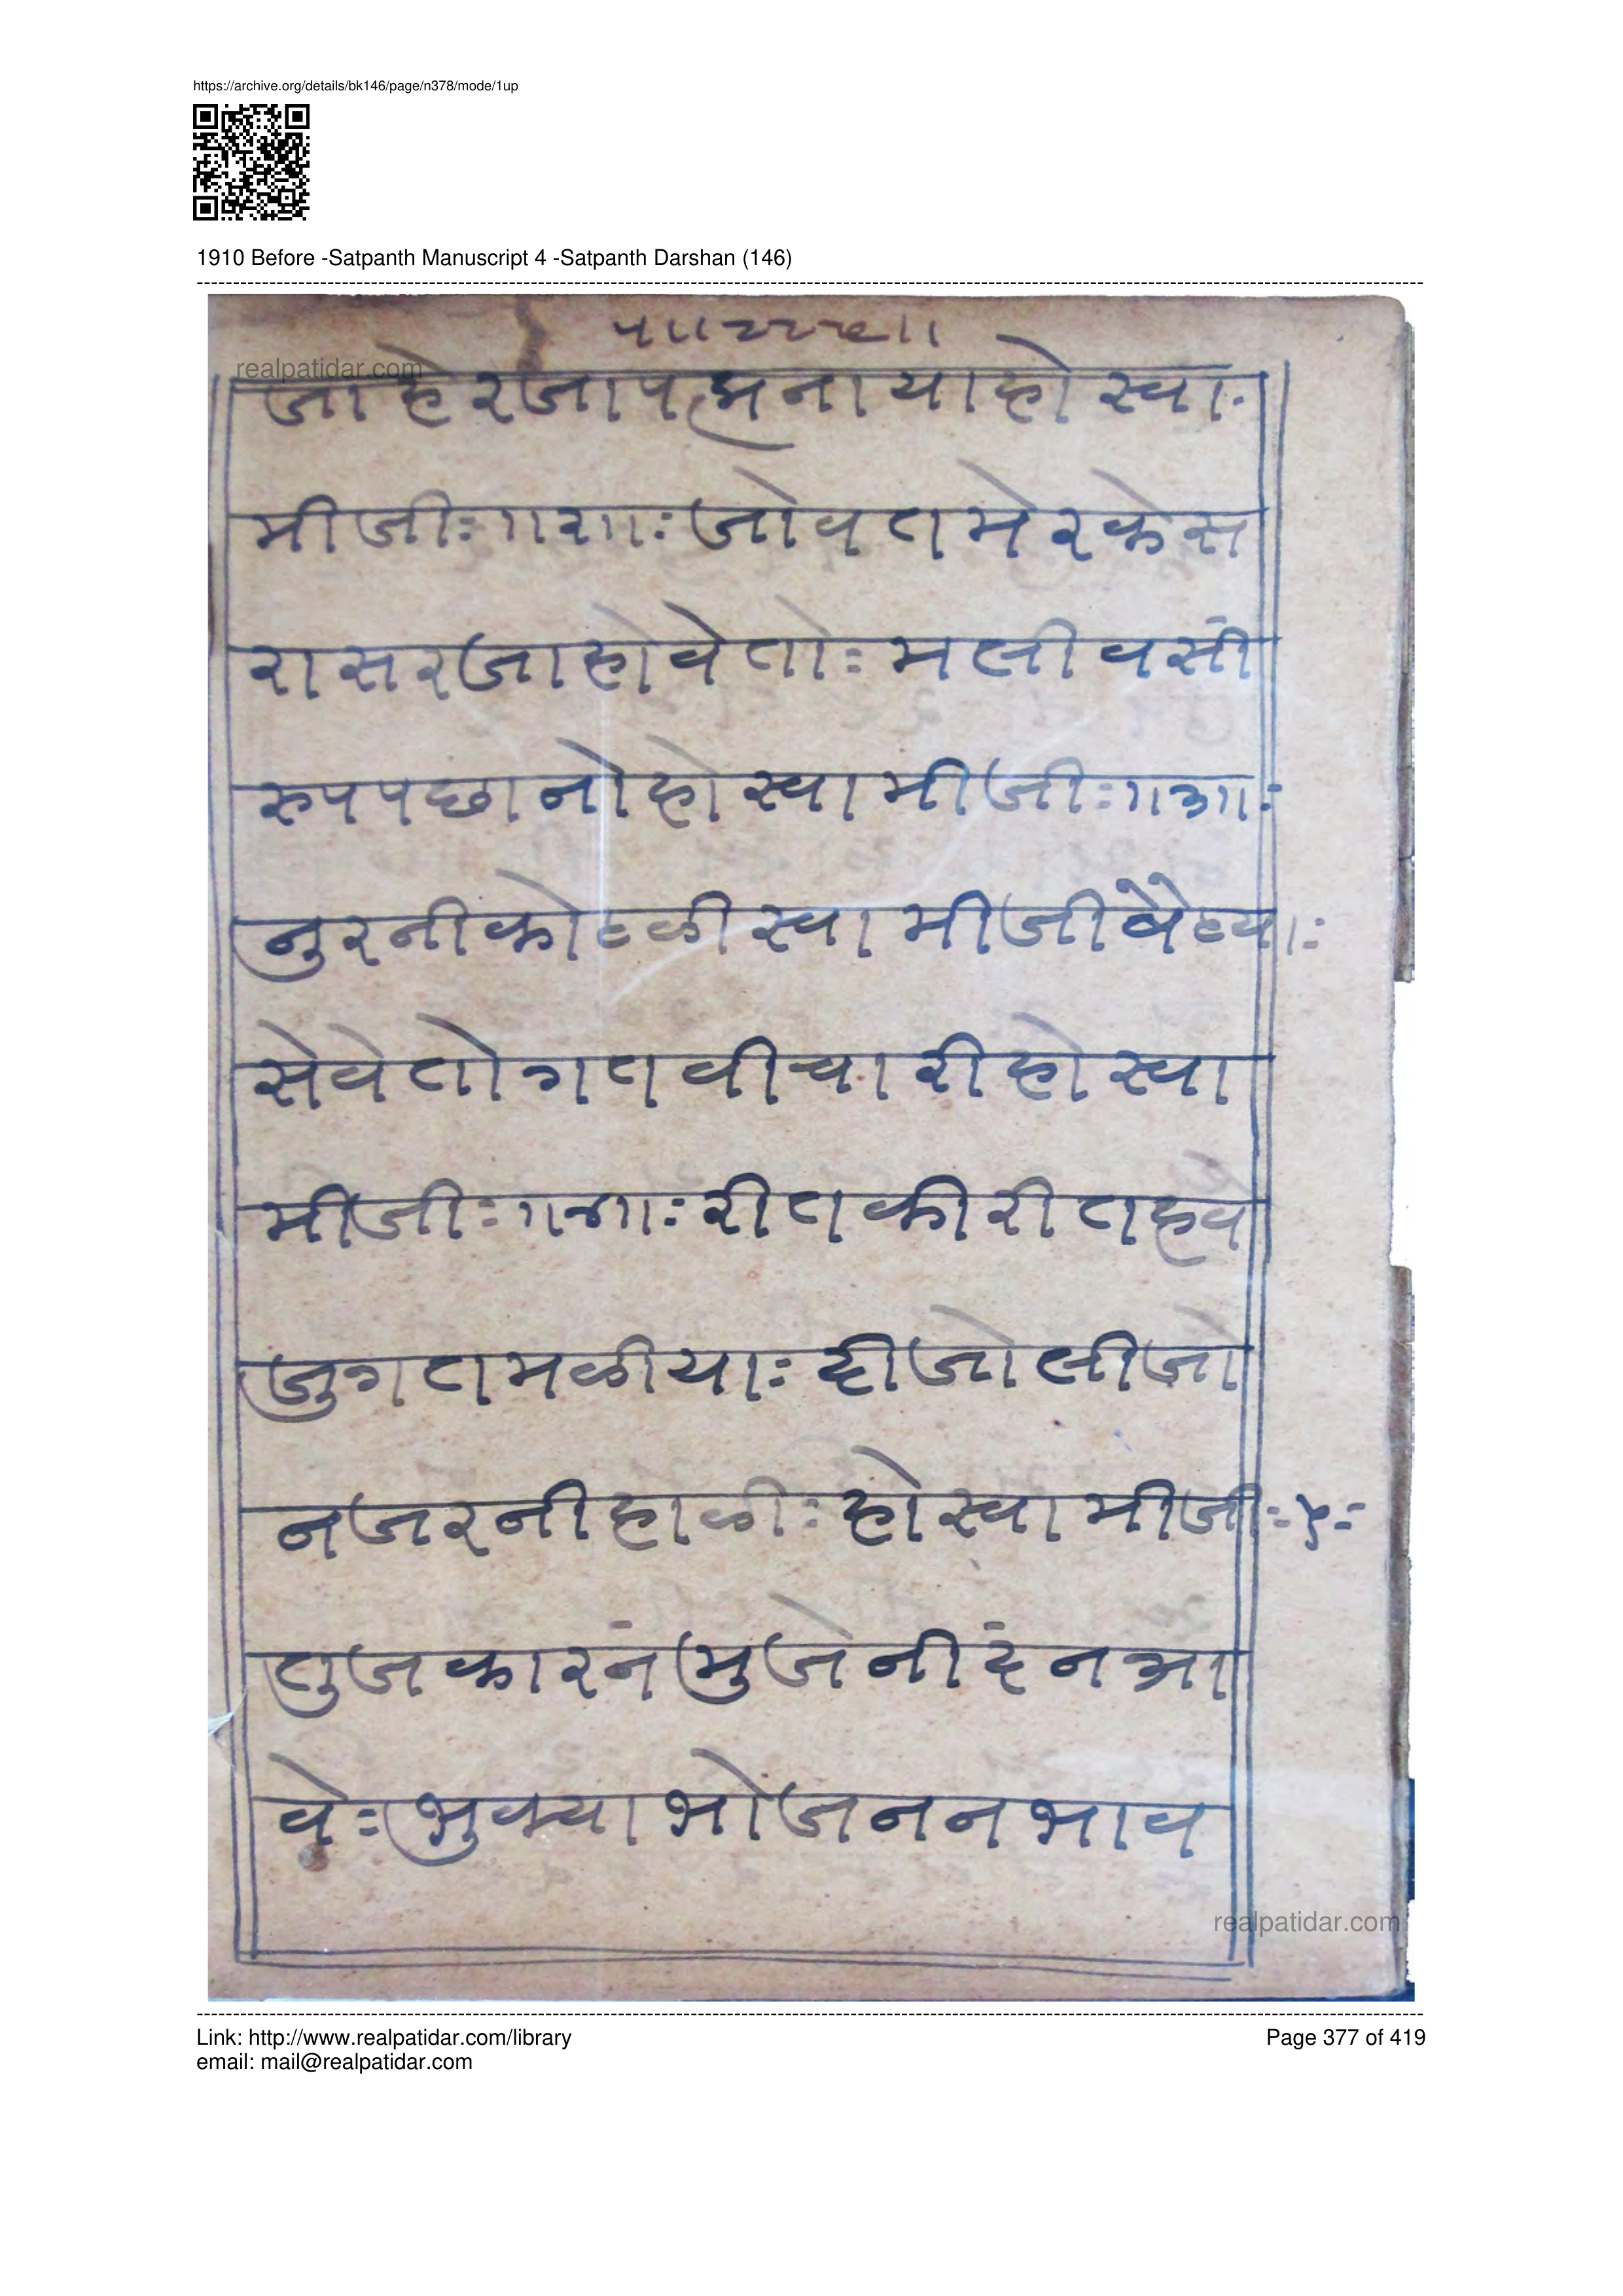 https://archive.org/details/bk146/page/n378/mode/1up
1910 Before -Satpanth Manuscript 4 -Satpanth Darshan (146)
realpatidar.com
जाहेरजा नायाहो स्वा
मीजीः॥२॥ः जोवतमेरकेस
रासरजाहोवेतोः मलीवसी
रुपपछानोहो स्वामीजीः॥३॥ः
नुरनी स्वामीजी
सेवेतोगतवीचारीहो स्वा
मीजीः॥४॥ः रीतकीरीतहवे
जुगतमळीयाः दीजोलीजो
नजरनीहाळीः हो स्वामीजीः५ः
तुजकारनं मुजेनीदंनआ
वेः भुक्या भोजननभाव
realpatidar.com
Link: http://www.realpatidar.com/library
Page 377 of 419
email: mail@realpatidar.com